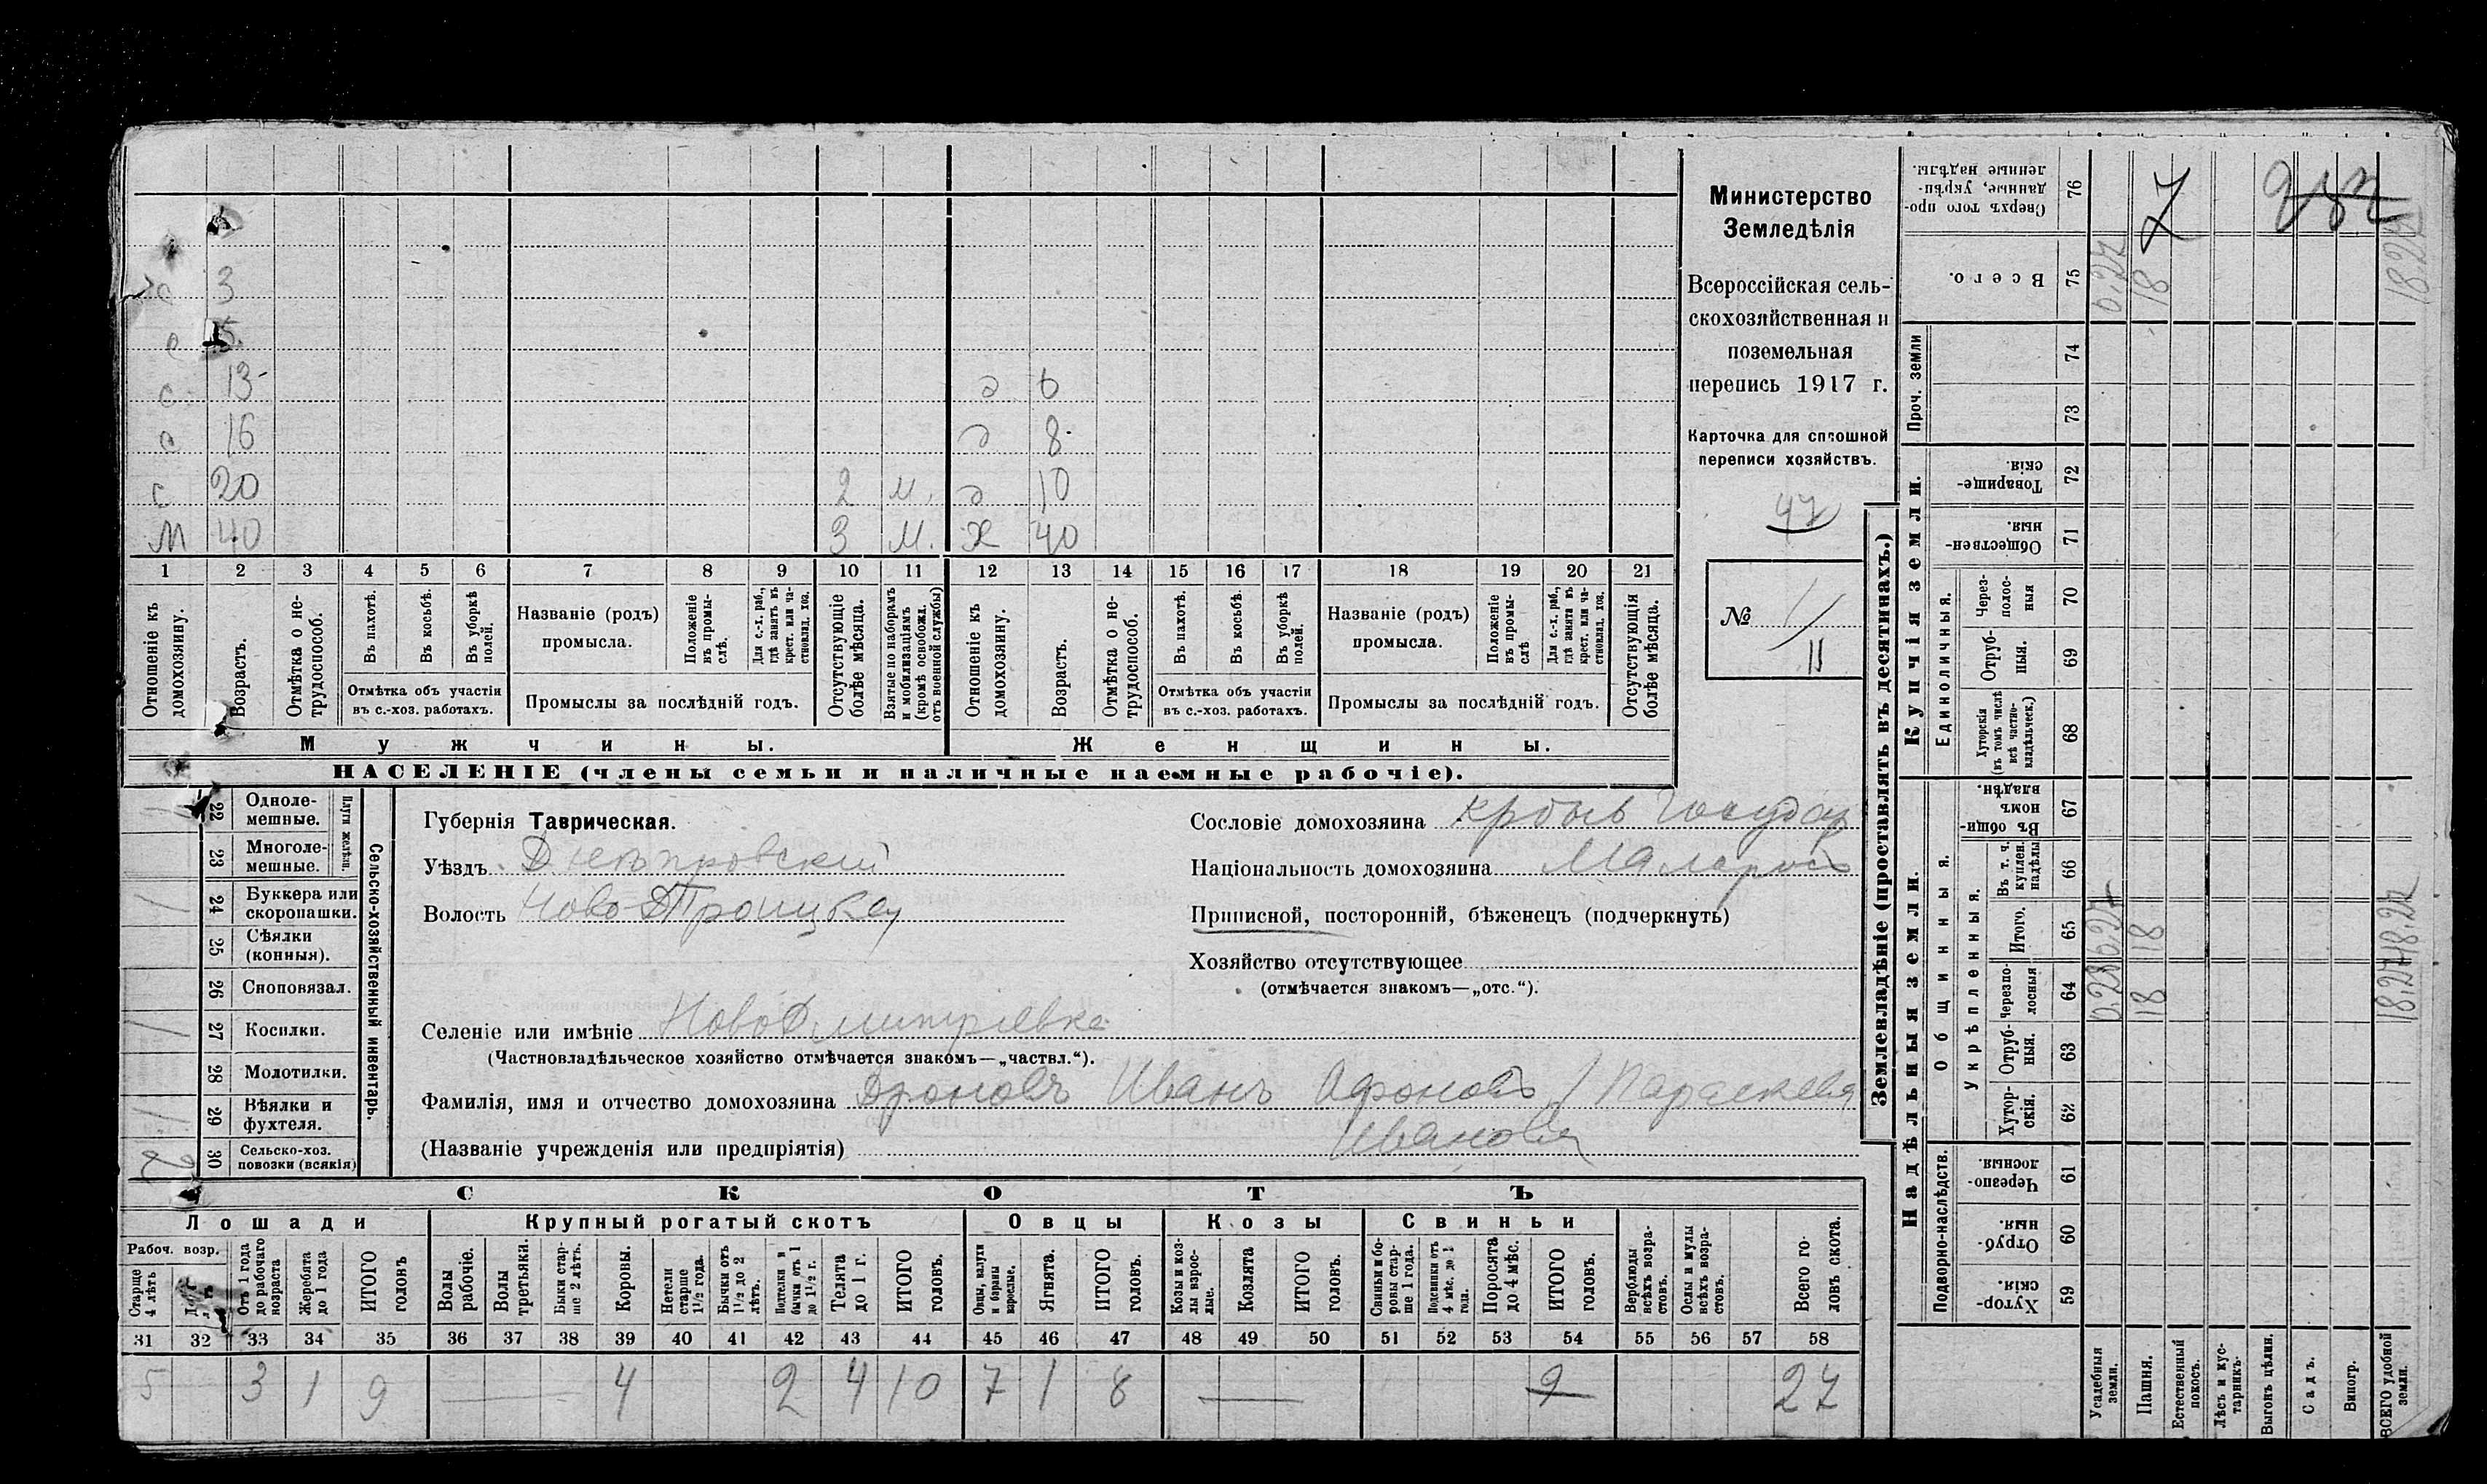 с 3
с 5
с 13 д 6
с 16 д 8
с 20 2 м. д 10
м 40 3 м. ж 40
1 2 3 4 5 6 7 8 9 10 11 12 13 14 15 16 17 18 19 20 21
Отношеніе къ домохозяину.
Возрастъ.
Отмѣтка о нетрудоспособ.
Въ пахотѣ.
Въ косьбѣ.
Въ уборкѣ полей.
Отмѣтка объ участіи
въ с.-хоз. работахъ.
Названіе (родъ)
промысла.
Положеніе въ промыслѣ.
Для с.-х. раб., гдѣ занятъ въ крест. или частновлад. хоз.
Промыслы за послѣдній годъ.
Отсутствующіе болѣе мѣсяца.
Взятые по наборамъ и мобилизаціямъ (кромѣ освобожд. отъ военной службы)
Отношеніе къ домохозяину.
Возрастъ.
Отмѣтка о нетрудоспособ.
Въ пахотѣ.
Въ косьбѣ.
Въ уборкѣ полей.
Отмѣтка объ участіи
въ с.-хоз. работахъ.
Названіе (родъ)
промысла.
Положеніе въ промыслѣ
Для с.-х. раб., гдѣ занята въ крест. или частновлад. хоз.
Промыслы за послѣдній годъ.
Отсутствующія болѣе мѣсяца.
Мужчины.
Женщины.
НАСЕЛЕНІЕ (члены семьи и наличные наемные рабочіе).
Министерство
Земледѣлія
Всероссійская сель-
скохозяйственная и
поземельная
перепись 1917 г.
Карточка для сплошной
переписи хозяйствъ.
47
№ 1/11
Сельско-хозяйственный инвентарь.
Плуги желѣзн.
22 Одноле-
мешные.
1
23 Многоле-
мешные.
24 Буккера или
скоропашки.
1
25 Сѣялки
(конныя).
26 Сноповязал.
27 Косилки.
1
28 Молотилки.
29 Вѣялки и
фухтеля.
1
30 Сельско-хоз.
повозки (всякія)
2
Губернія Таврическая.
Уѣздъ Днѣпровскій
Волость Ново Троицкая
Сословіе домохозяина
Національность домохозяина Малорос
Приписной, посторонній, бѣженецъ (подчеркнуть)
Хозяйство отсутствующее
(отмѣчается знакомъ—„отс.“).
Селеніе или имѣніе НовоДмитріевка
(Частновладѣльческое хозяйство отмѣчается знакомъ—„частвл.“).
Фамилія, имя и отчество домохозяина Дроновъ Иванъ Афоновъ / Параскева
Иванова
(Названіе учрежденія или предпріятія)
СКОТЪ
Лошади
Крупный рогатый скотъ
Овцы
Козы
Свиньи
Рабоч. возр.
Старше 4 лѣтъ
Отъ 1 года до рабочаго возраста
Жеребята до 1 года
ИТОГО головъ
Волы рабочіе.
Волы третьяки.
Быки старше 2 лѣтъ.
Коровы.
Нетели старше 1½ года.
Бычки отъ 1½ до 2 лѣтъ.
Подтелки и бычки отъ 1 до 1½ г.
Телята до 1 г.
ИТОГО головъ.
Овцы, валухи и бараны взрослые.
Ягнята.
ИТОГО головъ.
Козы и козлы взрослые.
Козлята
ИТОГО головъ.
Свиньи и боровы старше 1 года.
Подсвинки отъ 4 мѣс. до 1 года.
Поросята до 4 мѣс.
ИТОГО головъ.
Верблюды всѣхъ возрастовъ.
Ослы и мулы всѣхъ возрастовъ.
Всего головъ скота.
31 32 33 34 35 36 37 38 39 40 41 42 43 44 45 46 47 48 49 50 51 52 53 54 55 56 57 58
5 3 1 9 — 4 2 4 10 7 1 8 — 9 27
Землевладѣніе (проставлять въ десятинахъ.)
Купчія земли.
Надѣльныя земли.
Сверхъ того проданные, укрѣпленные надѣлы.
76
7
Всего.
75
0,27
18
18,27
Проч. земли
74
73
Товарищескія.
72
Общественныя.
71
Единоличныя.
Черезполосныя
70
Отрубныя.
69
Хуторскія (въ томъ числѣ всѣ частновладѣльческ.)
68
Общинныя.
Въ общинномъ владѣн.
67
Укрѣпленныя.
Въ т. ч. куплен. надѣлы
66
Итого.
65
0,27
18
18,27
черезполосныя
64
18
18,27
Отрубныя.
63
Хуторскія.
62
Подворно-наслѣдств.
Черезполосныя.
61
Отрубныя.
60
Хуторскія.
59
Усадебныя земли.
Пашня.
Естественный покосъ.
Лѣсъ и кустарникъ.
Выгонъ цѣлин.
Садъ.
Виногр.
ВСЕГО удобной земли.